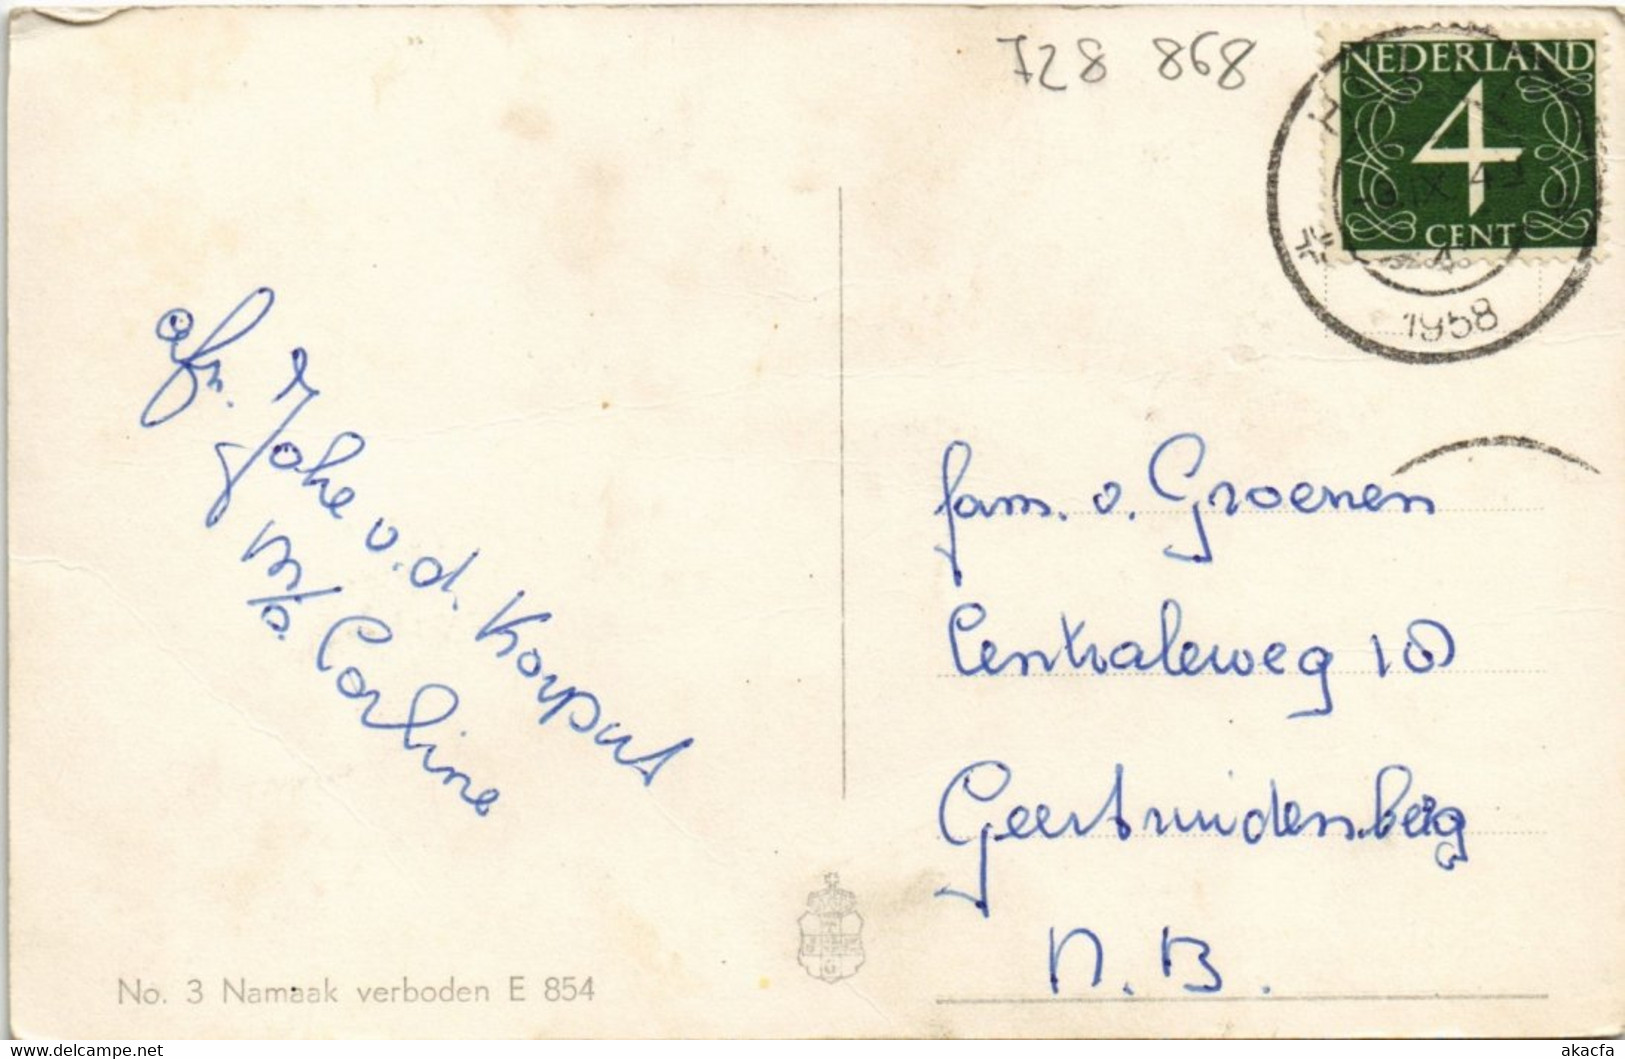 728 868
NEDERLAND
4
CENT
1958
afz. Joke v.d. Korput
Carline
fam. v. Groenen
Centraleweg 10
Geertruidenberg
N.B.
No. 3 Namaak verboden E 854
delcampe.net
akacfa